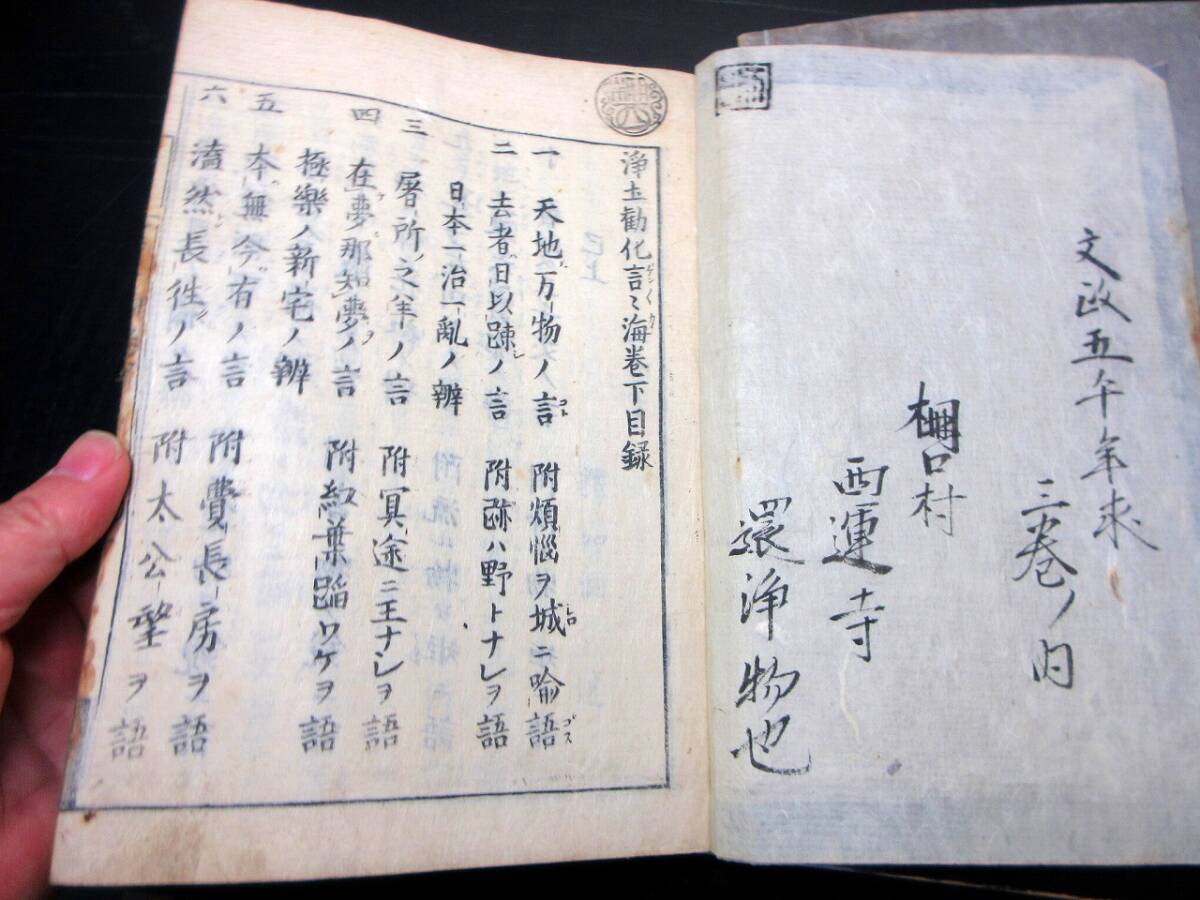 文政五午年来
三巻ノ内
棚口村
西運寺
還浄物也
浄土勧化言々海巻下目録
一 天地万物ノ言 附煩悩ヲ城ニ喩語
二 去者日以踈ノ言 附跡ハ野トナレヲ語
日本一治一乱ノ辨
三 屠所之羊ノ言 附冥途ニ王ナシヲ語
四 在夢那知夢ノ言
極樂ノ新宅ノ辨 附紅葉踏ワケヲ語
五 本無今有ノ言 附費長房ヲ語
六 溘然長徃ノ言 附太公望ヲ語